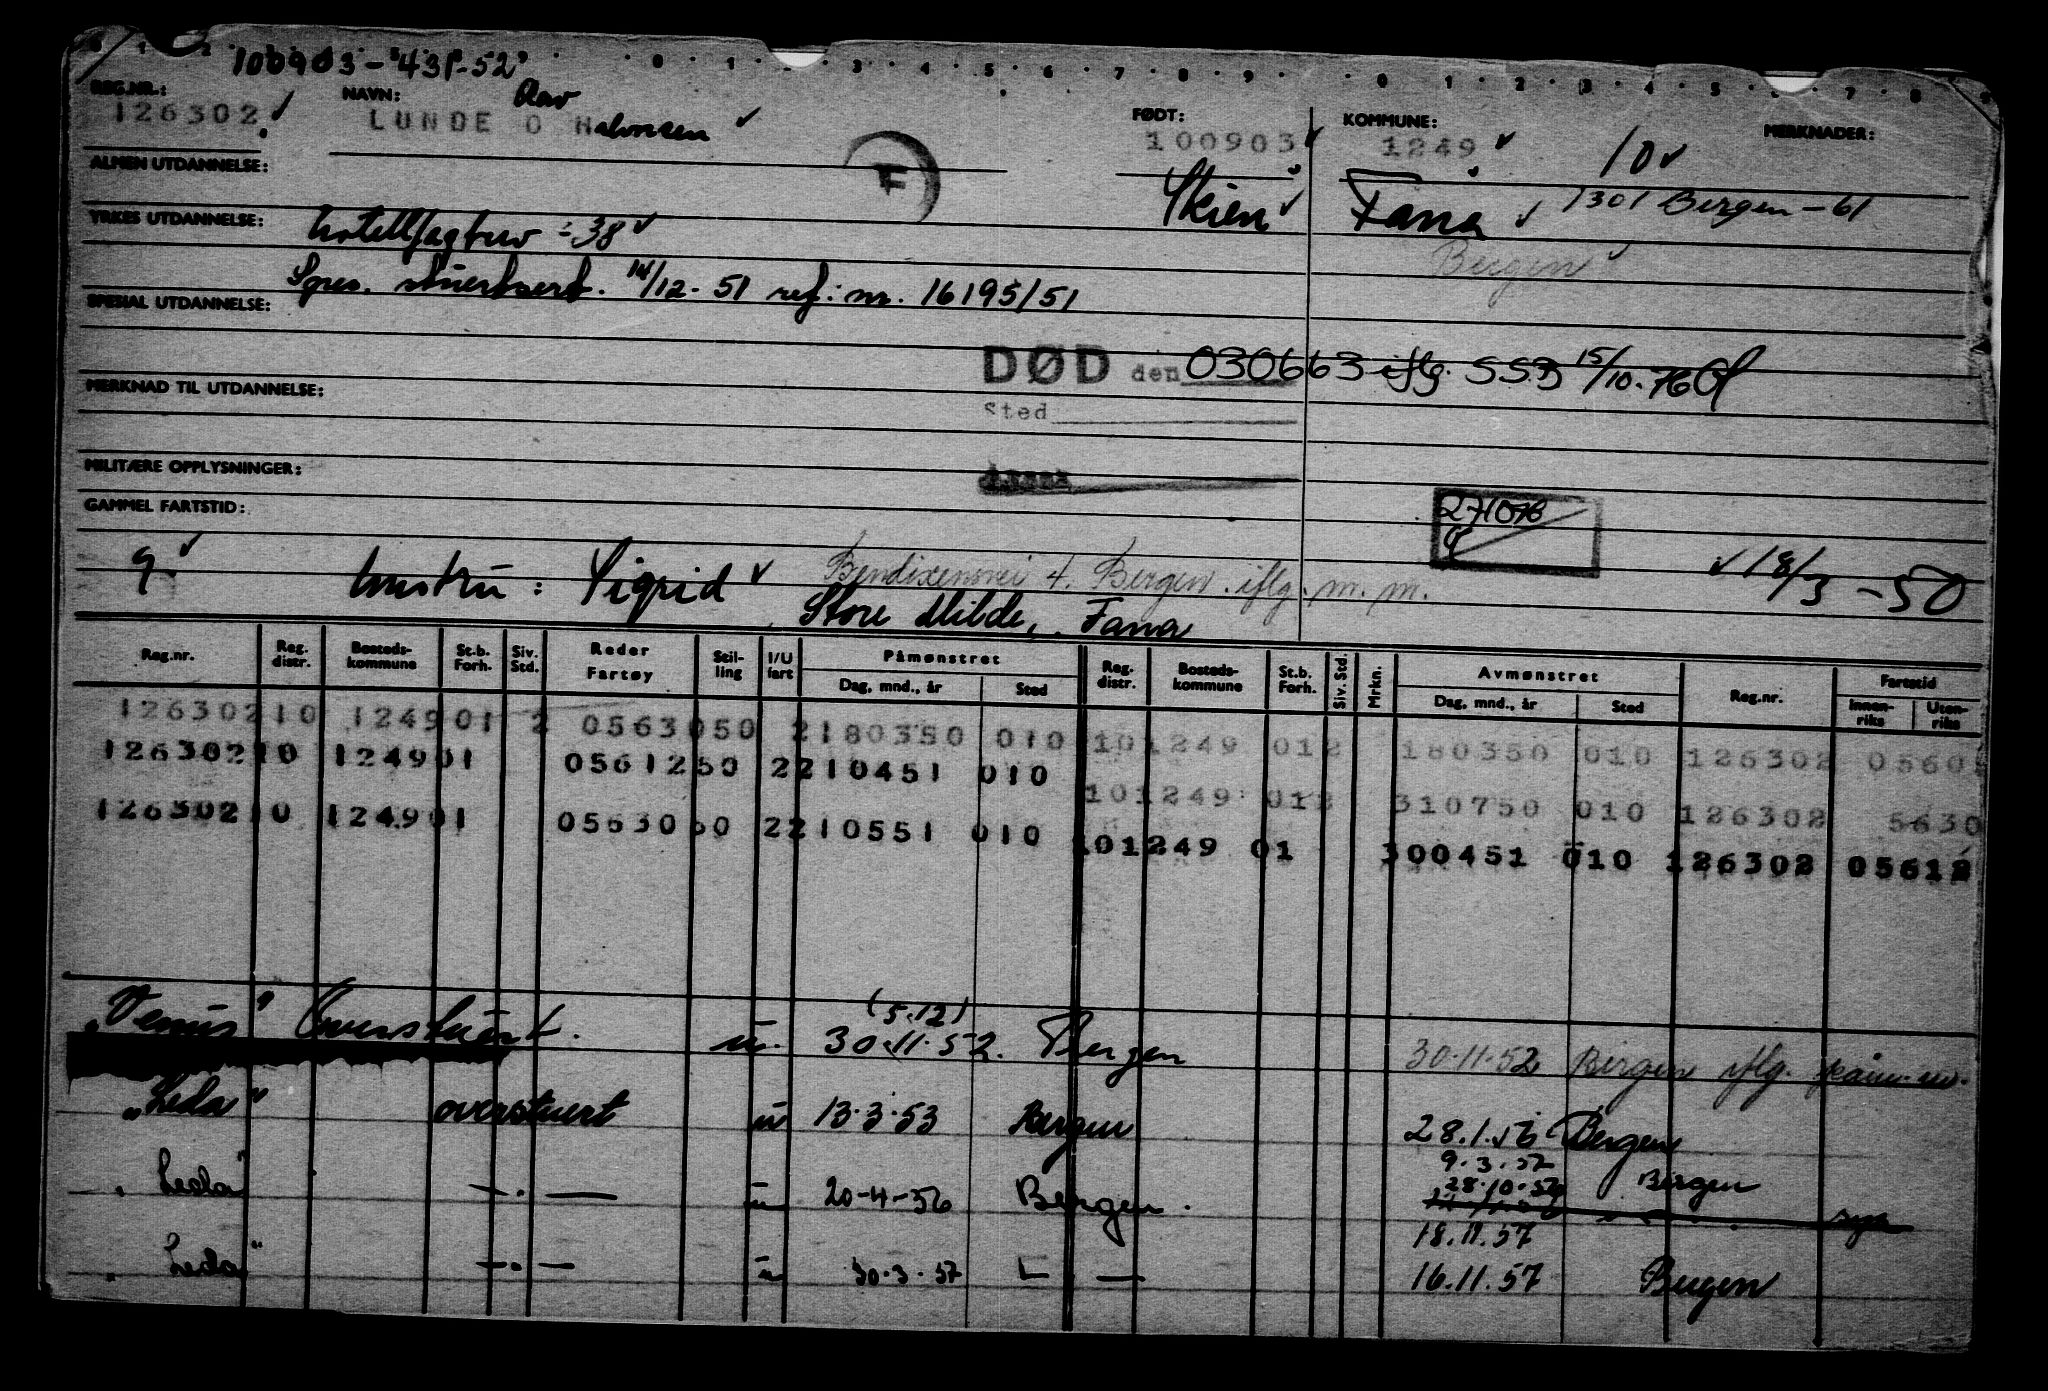 100903-43P-52
REG.NR.: NAVN: Olav FØDT: KOMMUNE: MERKNADER:
126302 LUNDE O Halvorsen 100903 1249 10
ALMEN UTDANNELSE: F Skien Fana 1301 Bergen -61
YRKES UTDANNELSE: hotellfagprøv -38 Bergen
Spes. stuertsert. 14/12-51 ref: nr. 16195/51
SPESIAL UTDANNELSE:
DØD den 030663 iflg. SSB 15/10-76
MERKNAD TIL UTDANNELSE: Sted
MILITÆRE OPPLYSNINGER:
GAMMEL FARTSTID: 271076
9 hustru: Sigrid Bendixensvei 4. Bergen. iflg. m. m. 18/3-50
Store Milde, Fana
Reg.nr. Reg. distr. Bosteds-kommune St.b. Forh. Siv. Std. Reder Fartøy Stil-ling I/U fart Påmønstret Dag, mnd., år Sted Reg. distr. Bosteds-kommune St.b. Forh. Siv. Std. Mrkn. Avmønstret Dag, mnd., år Sted Reg.nr. Fartstid Innen-riks Uten-riks
126302 10 1249 01 2 0563050 2180350 010 10 1249 012 180350 010 126302 0560
126302 10 1249 01 0561250 2210451 010 10 1249 012 310750 010 126302 5630
126302 10 1249 01 0563050 2210551 010 10 1249 01 300451 010 126302 05612
"Venus" Overstuert. u. (5.12) 30.11.52. Bergen 30.11.52 Bergen iflg.
"Leda" overstuert u 13.3.53 Bergen 28.1.56 Bergen
9.3.57
"Leda" -.- u 20-4-56 Bergen. 28.10.56 Bergen
18.11.57
"Leda" -.- u 30.3.57 - 16.11.57 Bergen